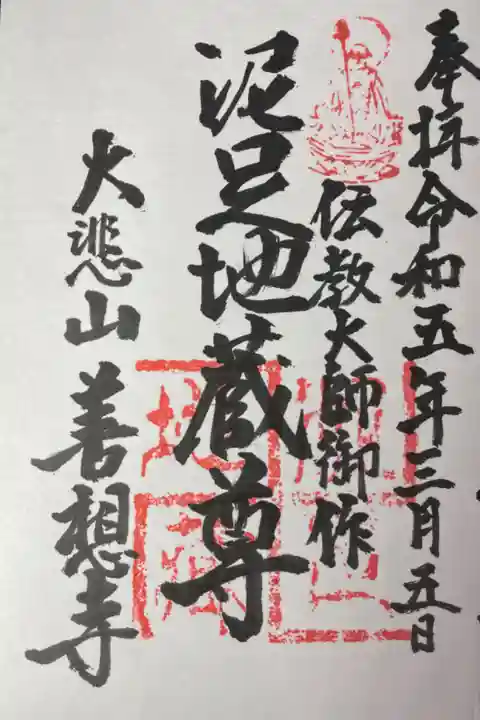 奉拝令和五年三月五日
伝教大師御作
泥足地蔵尊
大悲山善想寺